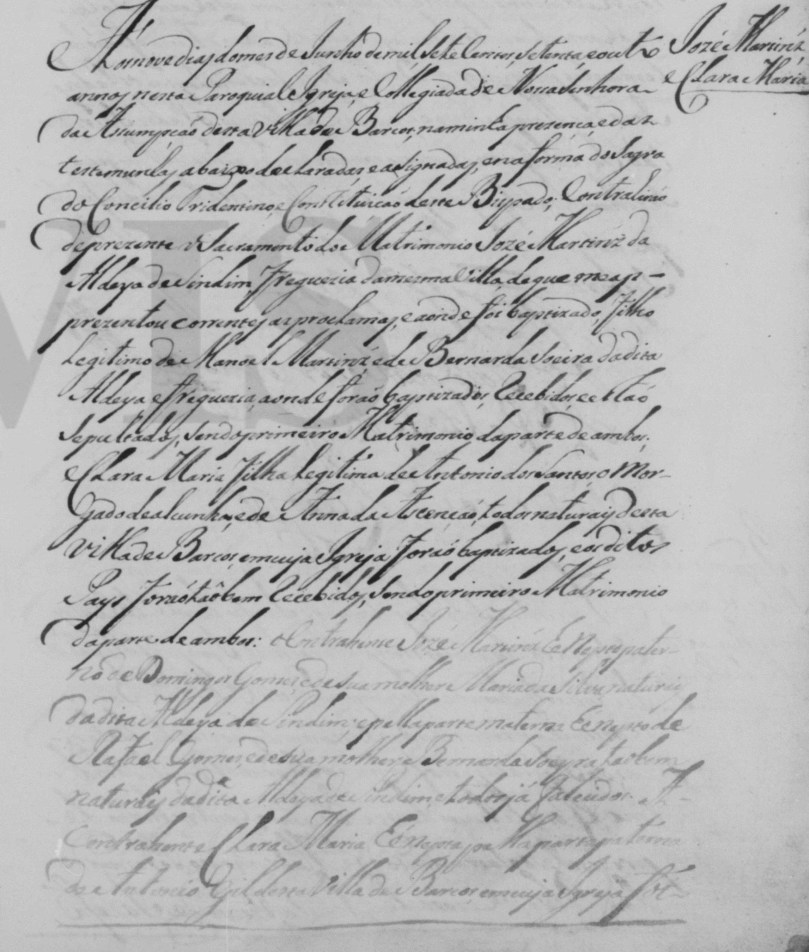 Aos nove dias do mes de Junho de mil sete centos setenta e outo
annos nesta Paroquial Igreja e Collegiada de Nossa Senhora
da Assumpção desta Villa de Barcos, na minha presença e das
testemunhas abaixo declaradas e asignadas, e na forma do Sagra
do Concilio Tridentino, e Constituicaõ deste Bispado, Contrahiraõ
de prezente o Sacramento do Matrimonio Jozé Martinz da
Aldeya de Sindim, freguezia da mesma Villa, de que me ap-
prezentou correntes as proclamas, e aonde foi baptizado, filho
Legitimo de Manoel Martinz, e de Bernarda da dita
Aldeya e freguezia, aonde foraõ baptizados, Recebidos, e estaõ
sepultados, sendo primeiro Matrimonio da parte de ambos,
e Clara Maria filha Legitima de Antonio dos Santos o Mor-
gado de alcunha, e de Anna da Ascençaõ, todos naturais desta
Villa de Barcos, em cuja Igreja foraõ baptizados, e os ditos
Pays foraõ taõbem Recebidos, sendo primeiro Matrimonio
da parte de ambos: o Contrahente Jozé Martinz he Neto pater-
no de Domingos Gomes, e de sua molher Maria da Silva naturais
da dita Aldeya de Sindim; e pella parte materna he neto de
Rafael Gomes, e de sua molher Bernarda taobem
naturais da dita Aldeya de Sindim, e todos já falecidos. A
Contrahente Clara Maria he neta pella parte paterna
de Antonio Gil desta Villa de Barcos, em cuja Igreja foi
Jozé Martinz
e Clara Maria